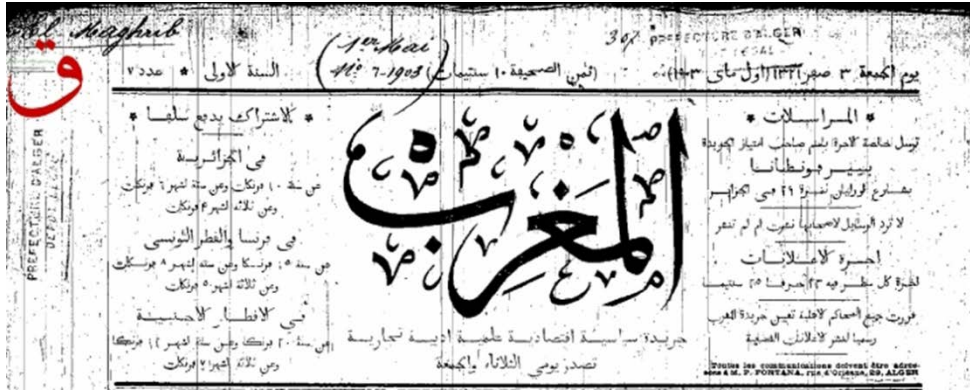 El Maghrib
1er Mai
No 7-1903
307
PREFECTURE D'ALGER
يوم الجمعة ٣ صفر ١٣٢١ (اول ماي ١٩٠٣)
(ثمن الصحيفة ١٠ سنتيمات)
السنة الاولى * عدد ٧
ق
* المراسلات *
ترسل خالصة الاجرة باسم صاحب امتياز الجريدة
بيير فونطانا
بشارع اورليان نمرة ٢٩ في الجزاير
لا ترد الرسايل لاصحابها نشرت ام لم تنشر
اجرة الاعلانات
اجرة كل سطر فيه ٢٣ حرفا ٢٥ سنتيما
قررت جميع المحاكم الاهلية تعيين جريدة المغرب
رسميا لنشر الاعلانات القضية
Toutes les communications doivent être adres-
sées à M. P. FONTANA, rue d'Orléans, 29, ALGER
المغرب
جريدة سياسية اقتصادية علمية ادبية تجارية
تصدر يومي الثلاثاء والجمعة
* الاشتراك يدفع سلفا *
في الجزائرية
عن سنة ١٠ فرنكات وعن ستة اشهر ٦ فرنكات
وعن ثلاثة اشهر ٤ فرنكات
في فرنسا والقطر التونسي
عن سنة ١٥ فرنكا وعن ستة اشهر ٨ فرنكات
وعن ثلاثة اشهر ٥ فرنكات
في الاقطار الاجنبية
عن سنة ٢٠ فرنكا وعن ستة اشهر ١٢ فرنكا
وعن ثلاثة اشهر ٧ فرنكات
PREFECTURE D'ALGER
DEPOT LEGAL